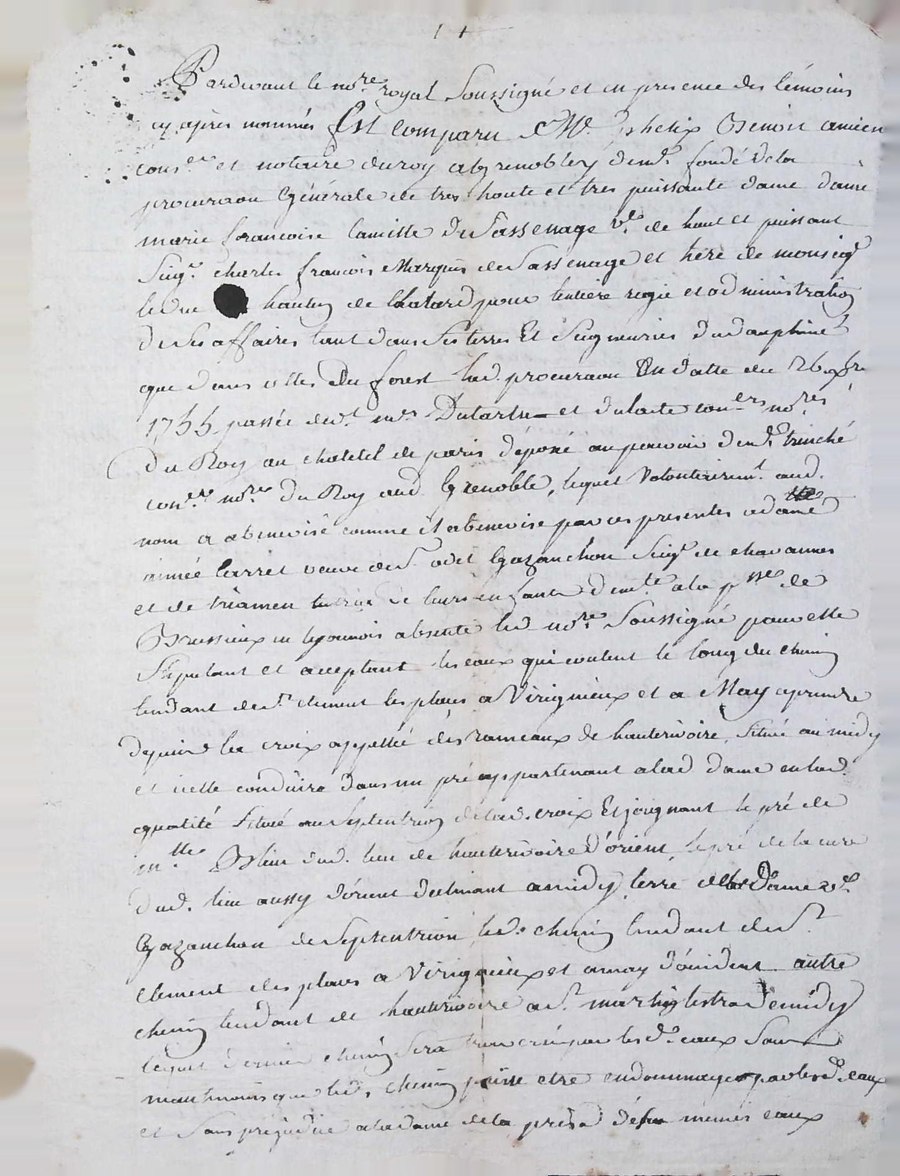 Pardevant le nore royal soussigné et en presence des témoins
cy après nommés Est comparu Me Benoit amien
conser et notaire du roy a Grenoble y demt fondé de la
procuraon Générale de tres haute et tres puissante dame dame
marie francoise Camille De Sassenage ve de haut et puissant
Seigr charles françois Marquis de Sassenage et de monseigr
le duc hautun de thalard pour lentière regie et administration
de ses affaires tant dans ses terres Et seigneuries du dauphiné
que dans celles Du forest lad. procuraon En datte du 26
1755 passée devt mrs Dutartre et dulaite coners nores
Du Roy au chatelet de paris déposé au pouvoir de me trinché
conser nore Du Roy aud. Grenoble, lequel volontairemt aud.
nom a abenevisé comme il abenevise par ces presentes a dame
aimée Carret veuve de Sr odet Gazanchon Seigr de chavannes
et de triamen tutrice de leurs enfants demte a la psse de
Brussieux en lyonnois absente led nore Soussigné pour elle
Stipulant et acceptant les eaux qui coulent le long du chemin
tendant de St clement les places a Virignieux et a May a prendre
depuis la croix appellée des rameaux de hauterivoire, située au midy
et icelle conduire dans un pré appartenant a lad dame en lad.
qualité situé au septentrion de lad. croix Et joignant le pré de
mlle Blein dud. lieu de hauterivoire d'orient, le pré de la cure
dud. lieu aussy d'orient declinant a midy, terre de la Dame ve
Gazanchon de septentrion, led. chemin tendant de St
clement des places a Virignieux et a may d'occident autre
chemin tendant de hauterivoire a St martin lestra de midy
lequel dernier chemin sera traversé par lesd. eaux sans
neantmoins que led. chemin puisse etre endommagé par lesd. eaux
et sans prejudice a lad dame de la prise des memes eaux